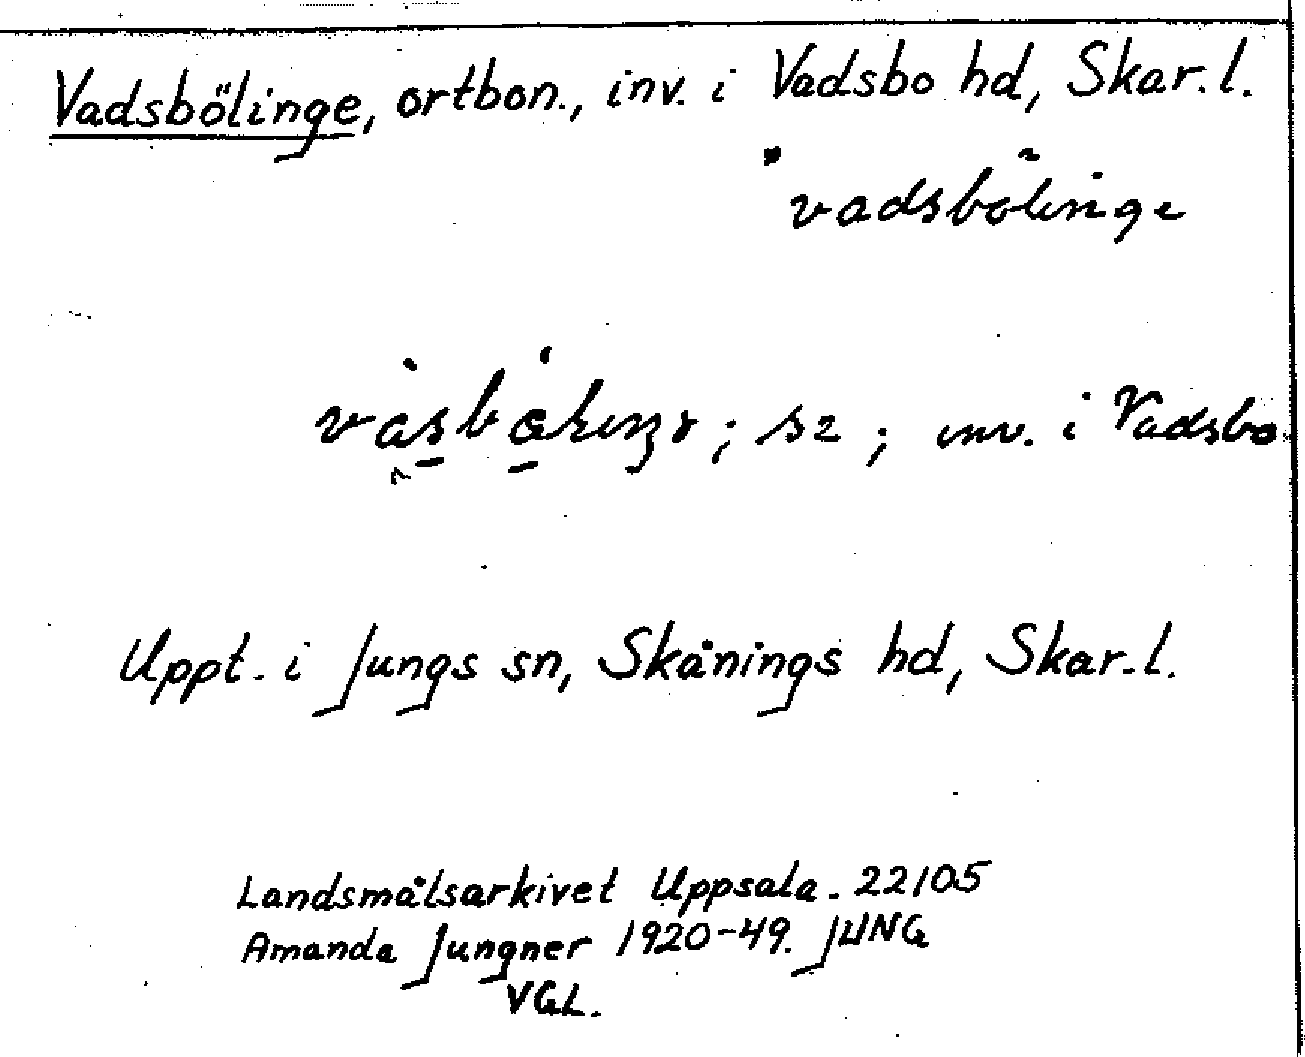 Vadsbölinge, ortbon., inv. i Vadsbo hd, Skar. l.
vadsbölinge
; s2 ; inv. i Vadsbo
Uppt. i Jungs sn, Skånings hd, Skar. l.
Landsmålsarkivet Uppsala. 22105
Amanda Jungner 1920-49. JUNG
VGL.